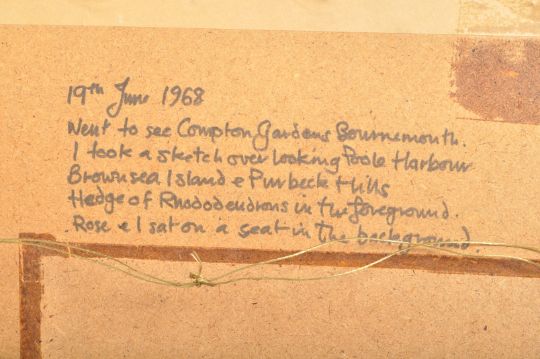 19th June 1968
Went to see Compton Gardens Bournemouth.
I took a sketch over looking Poole Harbour
Brownsea Island & Purbeck Hills
Hedge of Rhododendrons in the foreground.
Rose & I sat on a seat in the background.